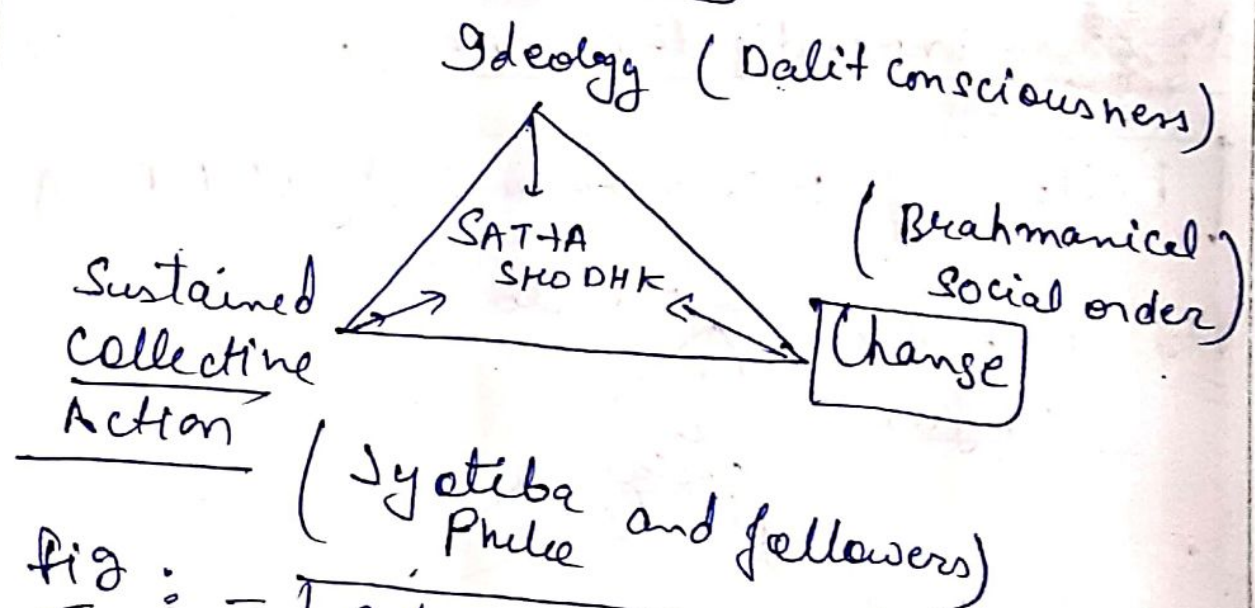 Ideology (Dalit consciousness)
SATYA
SHODHK
(Brahmanical
social order)
Sustained
Collective
Action
Change
(Jyotiba
Phule and followers)
fig : -